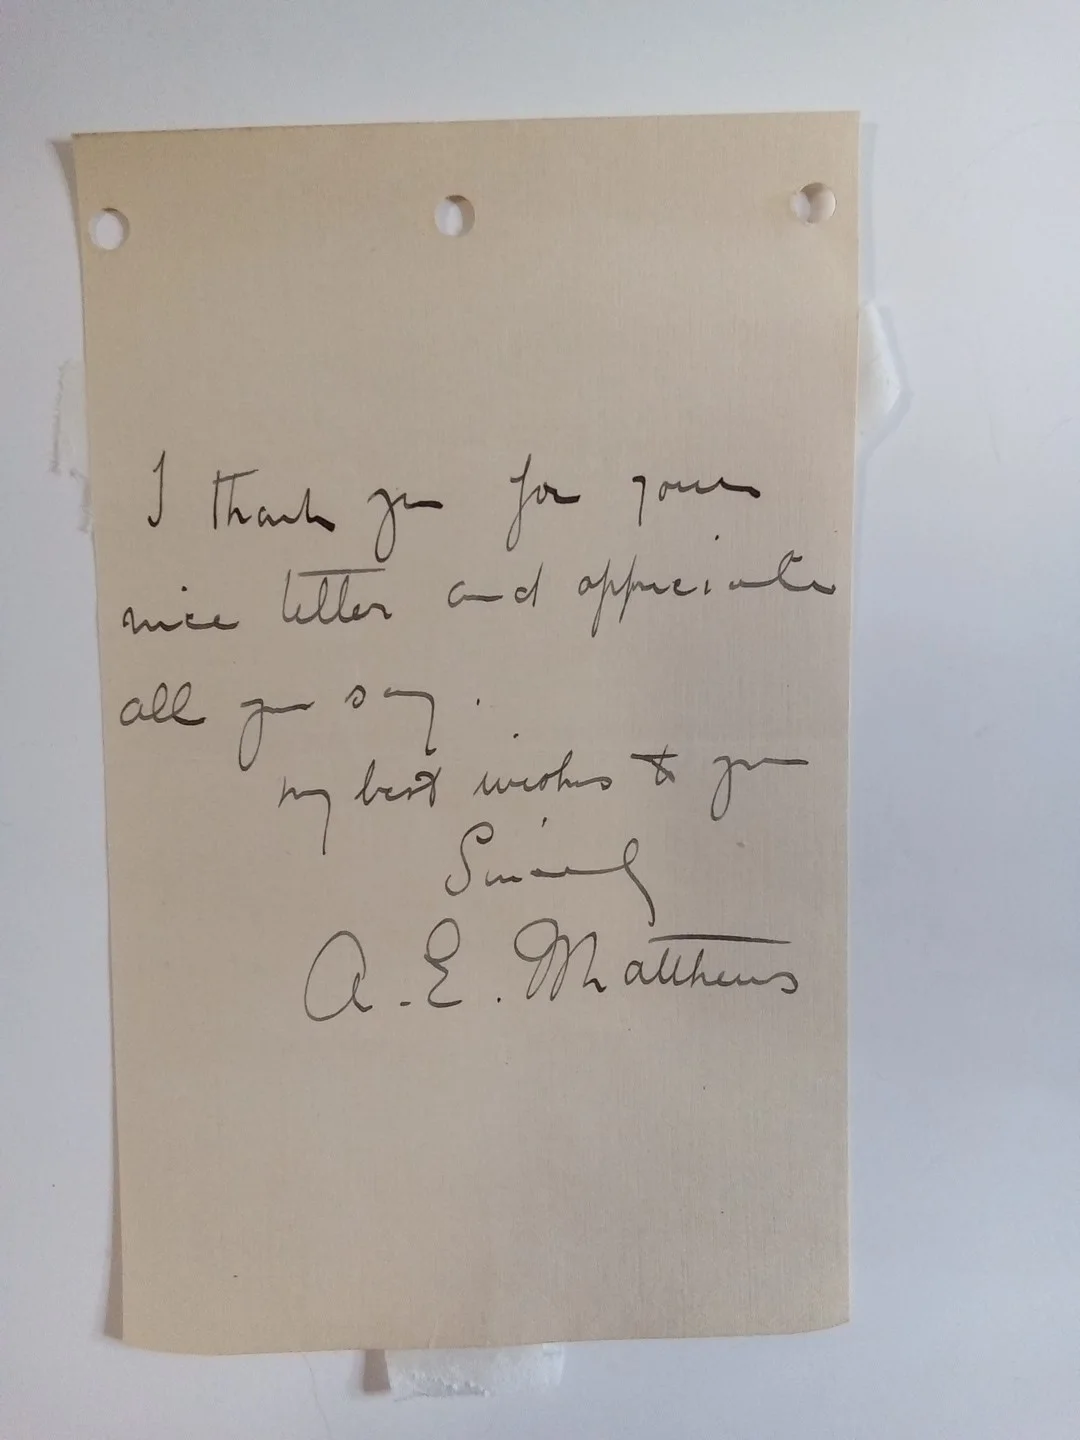 I thank you for your
nice letter and appreciate
all you say.
my best wishes to you
Sincerely
A. E. Matthews